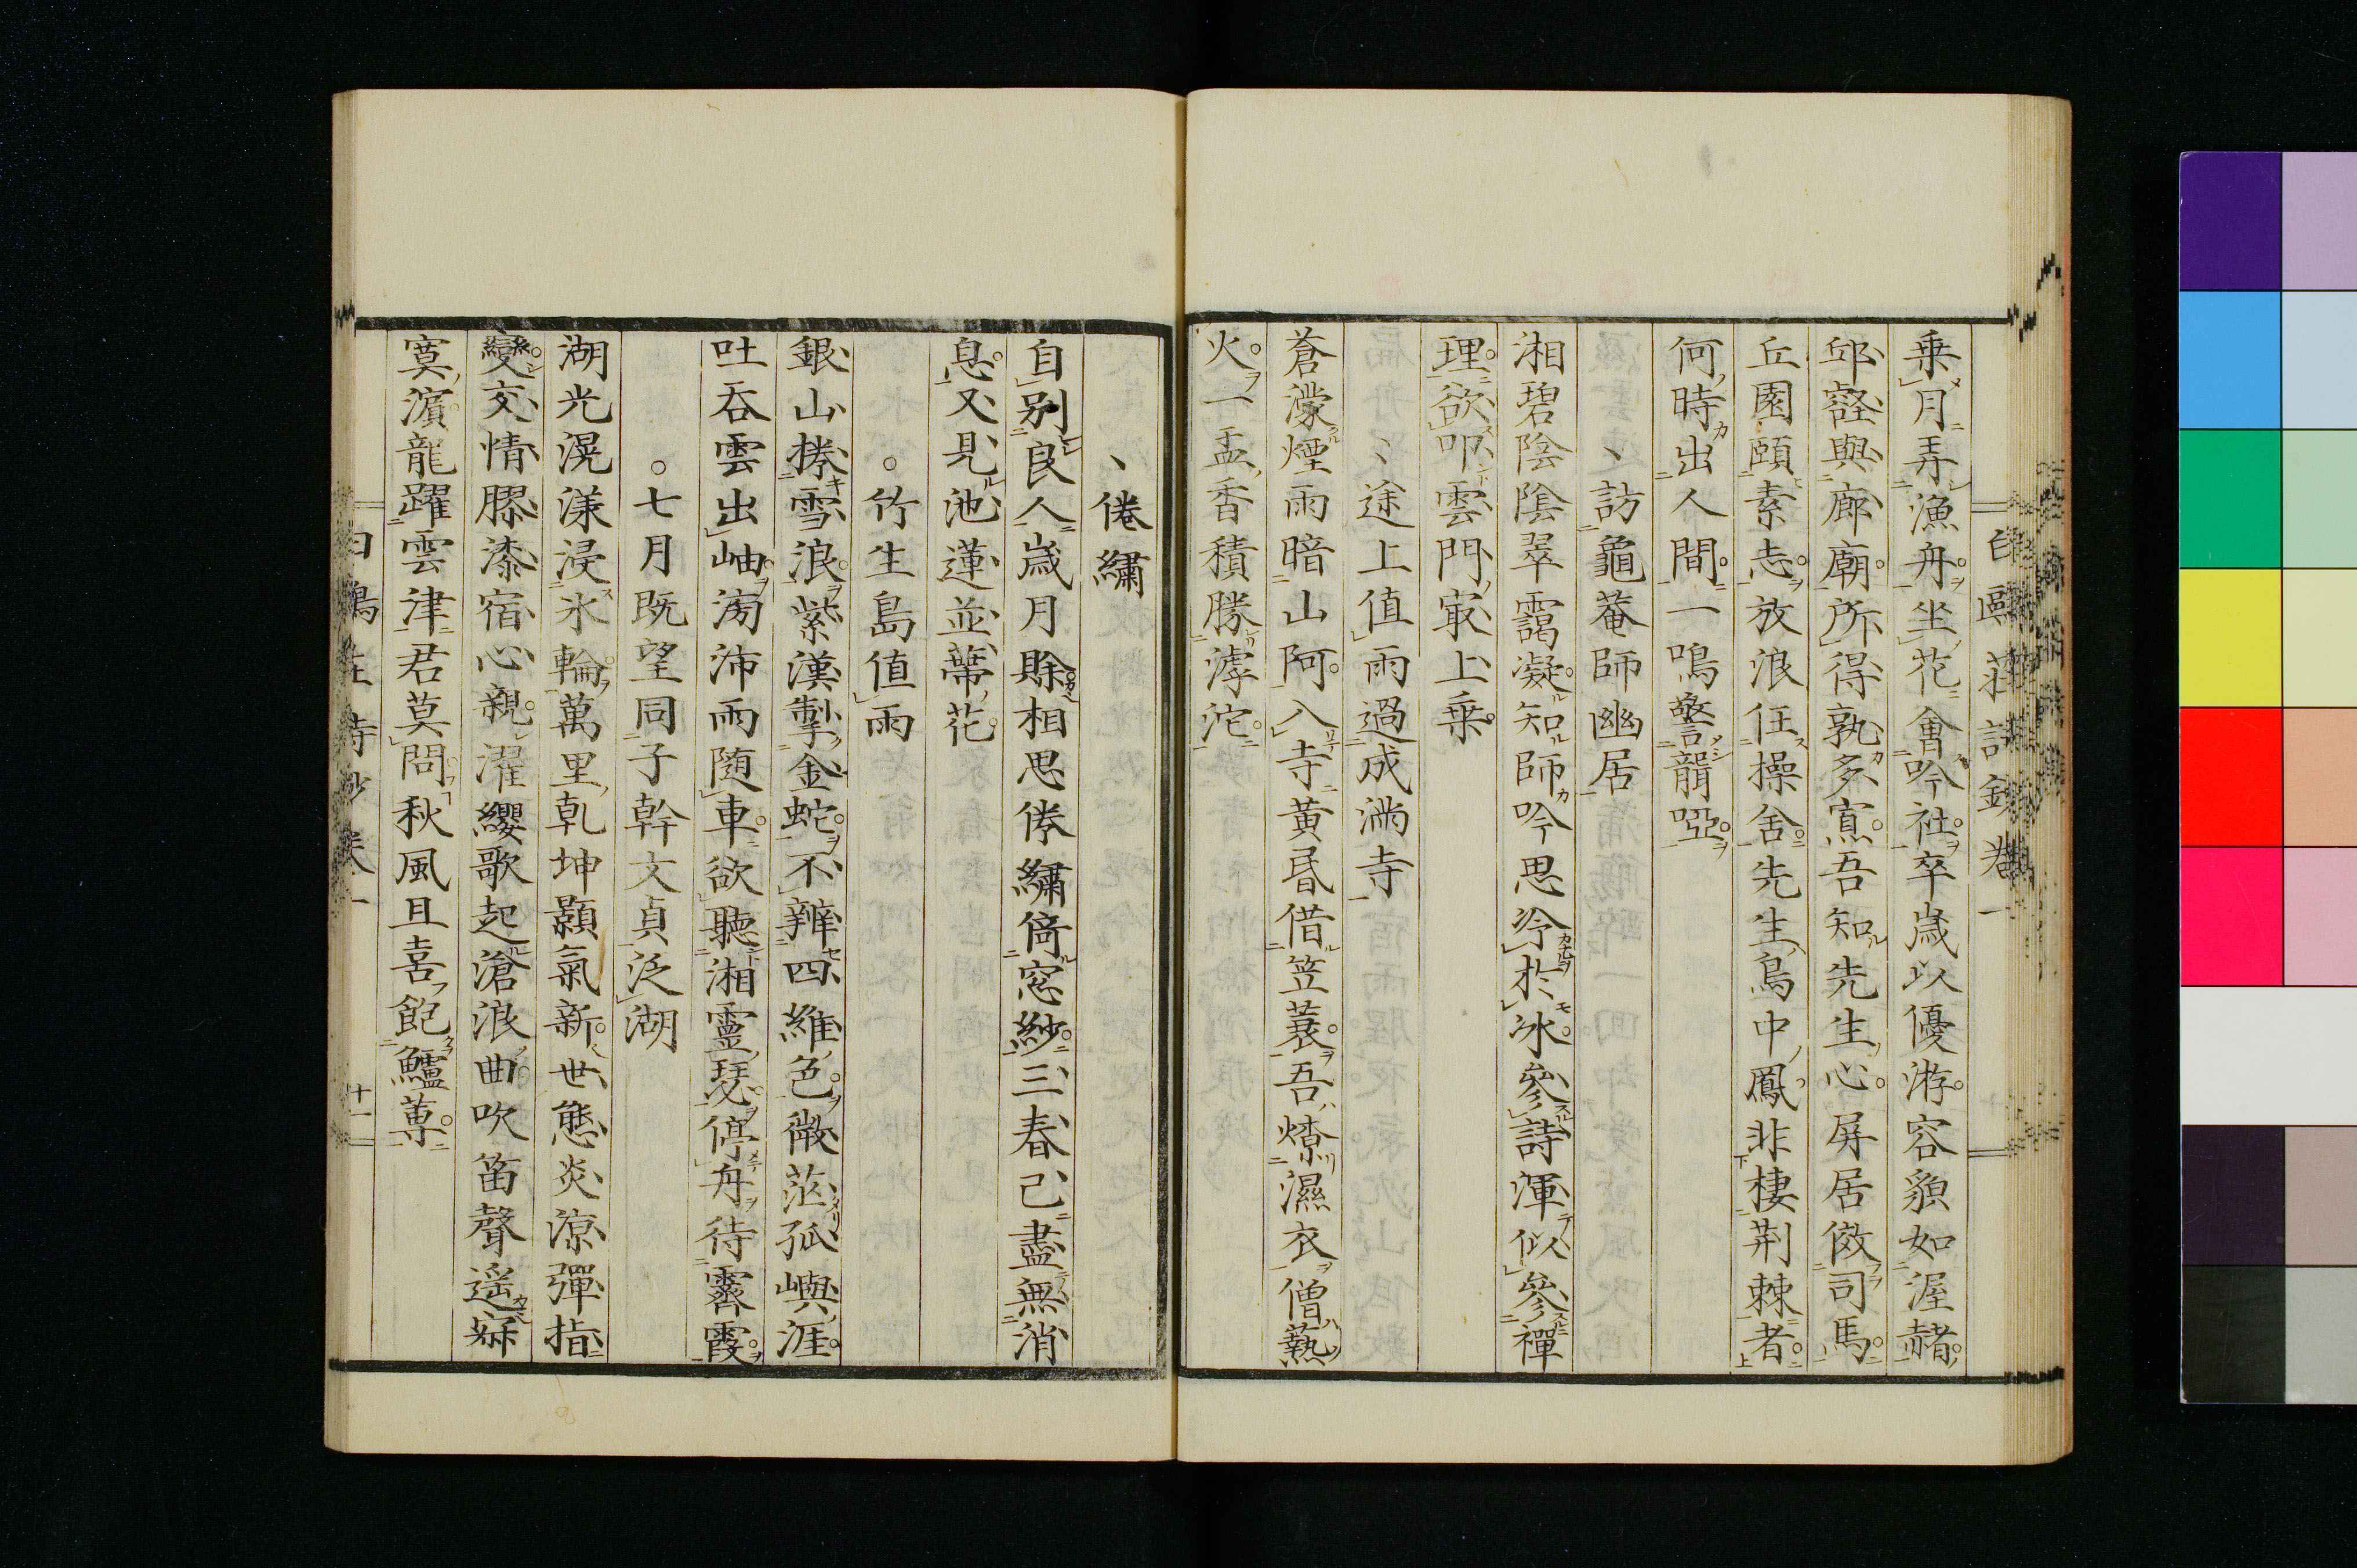 白鷗莊詩鈔卷一
乗月弄漁舟坐花會吟社卒歳以優游容貌如渥赭
邱壑與廊廟所得孰多寡吾知先生心屏居傚司馬
丘園頤素志放浪任操舍先生鳥中鳳非棲荊棘者
何時出人間一鳴警聾啞
訪龜菴師幽居
湘碧陰陰翠靄凝知師吟思冷於冰參詩渾似參禪
理欲叩雲門㝡上乗
途上值雨過成滿寺
蒼濛煙雨暗山阿入寺黃昏借笠蓑吾燎濕衣僧爇
火一盂香積勝滹沱
倦繡
自別良人歳月賖相思倦繡倚窓紗三春已盡無消
息又見池蓮並蒂花
竹生島值雨
銀山捲雪浪紫漢掣金蛇不辨四維色微茫孤嶼涯
吐吞雲出岫滂沛雨随車欲聽湘靈瑟停舟待霽霞
七月既望同子幹文貞泛湖
湖光滉漾浸氷輪萬里乾坤顥氣新世態炎涼彈指
變交情膠漆宿心親濯纓歌起滄浪曲吹笛聲遥寂
寞濵龍躍雲津君莫問秋風且喜飽鱸蓴
白鷗莊詩鈔卷一
十一